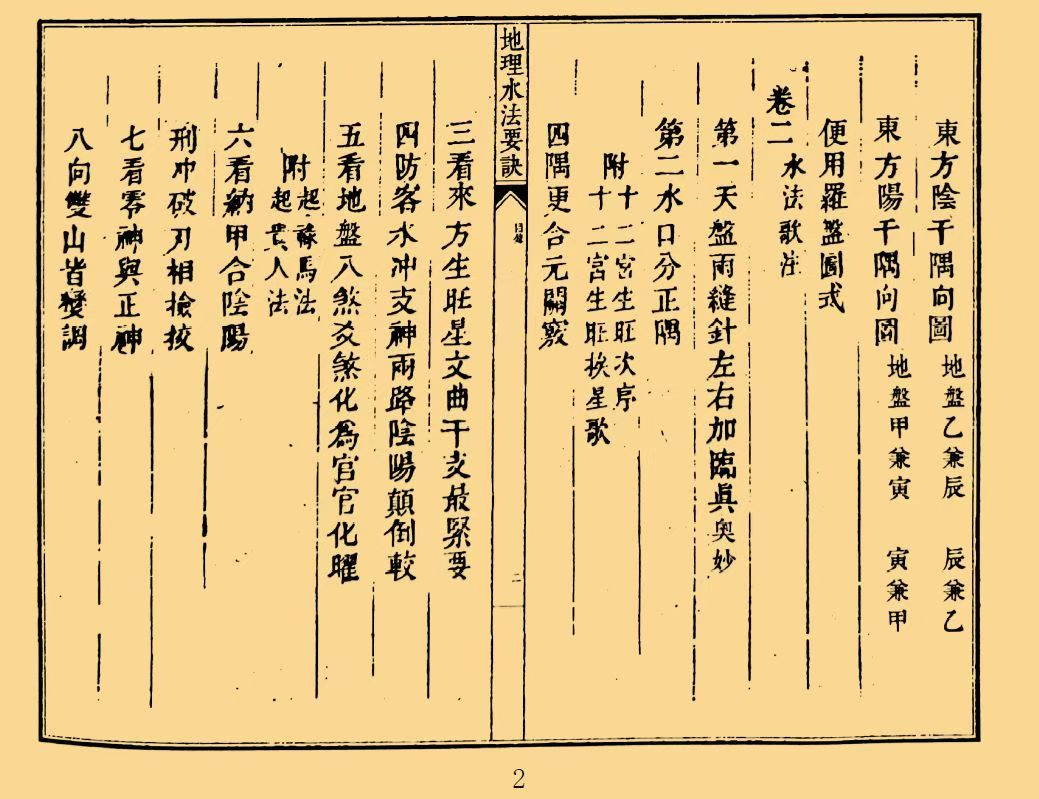 東方陰干隅向圖 地盤乙兼辰 辰兼乙
東方陽干隅向圖 地盤甲兼寅 寅兼甲
便用羅盤圖式
卷二
水法歌注
第一天盤兩縫針左右加臨眞奧妙
第二水口分正隅
附十二宮生旺次序
十二宮生旺挨星歌
四隅更合元關竅
地理水法要訣
目錄
二
三看來方生旺星文曲干支最緊要
四防客水冲支神兩路陰陽顛倒較
五看地盤八煞爻煞化爲官官化曜
附起祿馬法
起貴人法
六看納甲合陰陽
刑冲破刃相撿挍
七看零神與正神
八向雙山皆變調
2